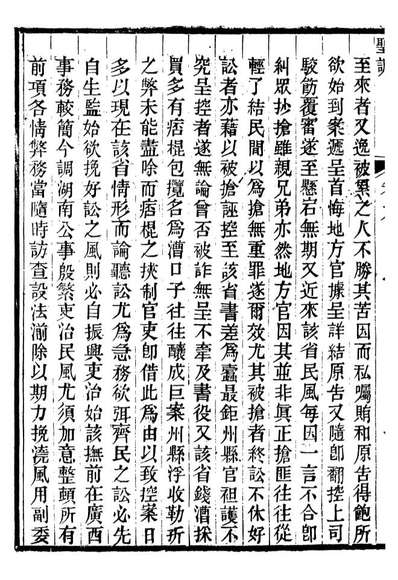 聖訓
至來者又逸被累之人不勝其苦因而私囑賄和原告得飽所
欲始到案遞呈首悔地方官據呈詳結原告又隨卽翻控上司
駮飭覆審遂至懸宕無期又近來該省民風每因一言不合卽
糾眾抄搶雖親兄弟亦然地方官因其並非眞正搶匪往往從
輕了結民閒以爲搶無重罪遂爾效尤其被搶者終訟不休好
訟者亦藉以被搶誣控至該省書差爲蠹最鉅州縣官袒護不
究呈控者遂無論曾否被詐無呈不牽及書役又該省錢漕採
買多有痞棍包攬名爲漕口子往往釀成巨案州縣浮收勒折
之弊未能盡除而痞棍之挾制官吏卽借此爲由以致控案日
多以現在該省情形而論聽訟尤爲急務欲弭齊民之訟必先
自生監始欲挽好訟之風則必自振興吏治始該撫前在廣西
事務較簡今調湖南公事殷繁吏治民風尤須加意整頓所有
前項各情弊務當隨時訪查設法湔除以期力挽澆風用副委